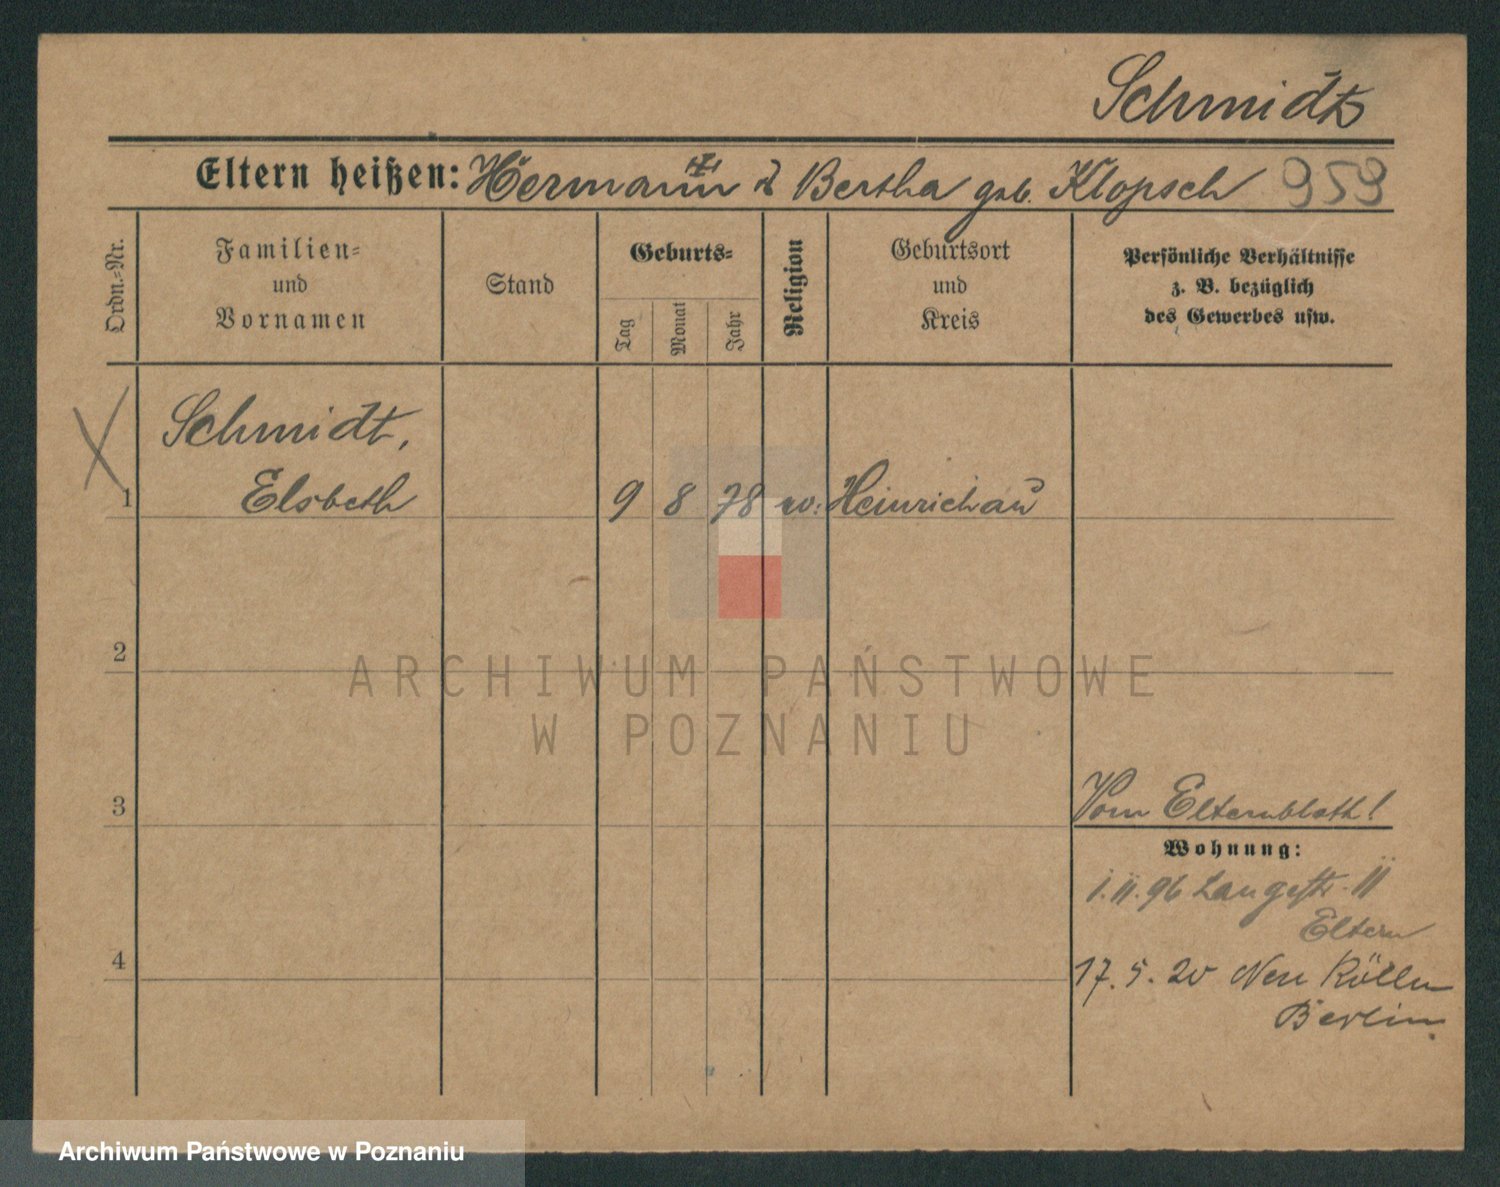 Schmidt
Eltern heißen: Hermann & Bertha geb. Klopsch 959
Ordn.=Nr.
Familien=
und
Vornamen
Stand
Geburts=
Tag
Monat
Jahr
Religion
Geburtsort
und
Kreis
Persönliche Verhältnisse
z. B. bezüglich
des Gewerbes usw.
Schmidt,
1 Elsbeth 9 8 78 Heinrichau
2
3
Vom Elternblatt!
Wohnung:
1.11.96 Langestr. 11
Eltern
4
17.5.20 Neu Kölln
Berlin
ARCHIWUM PAŃSTWOWE
W POZNANIU
Archiwum Państwowe w Poznaniu